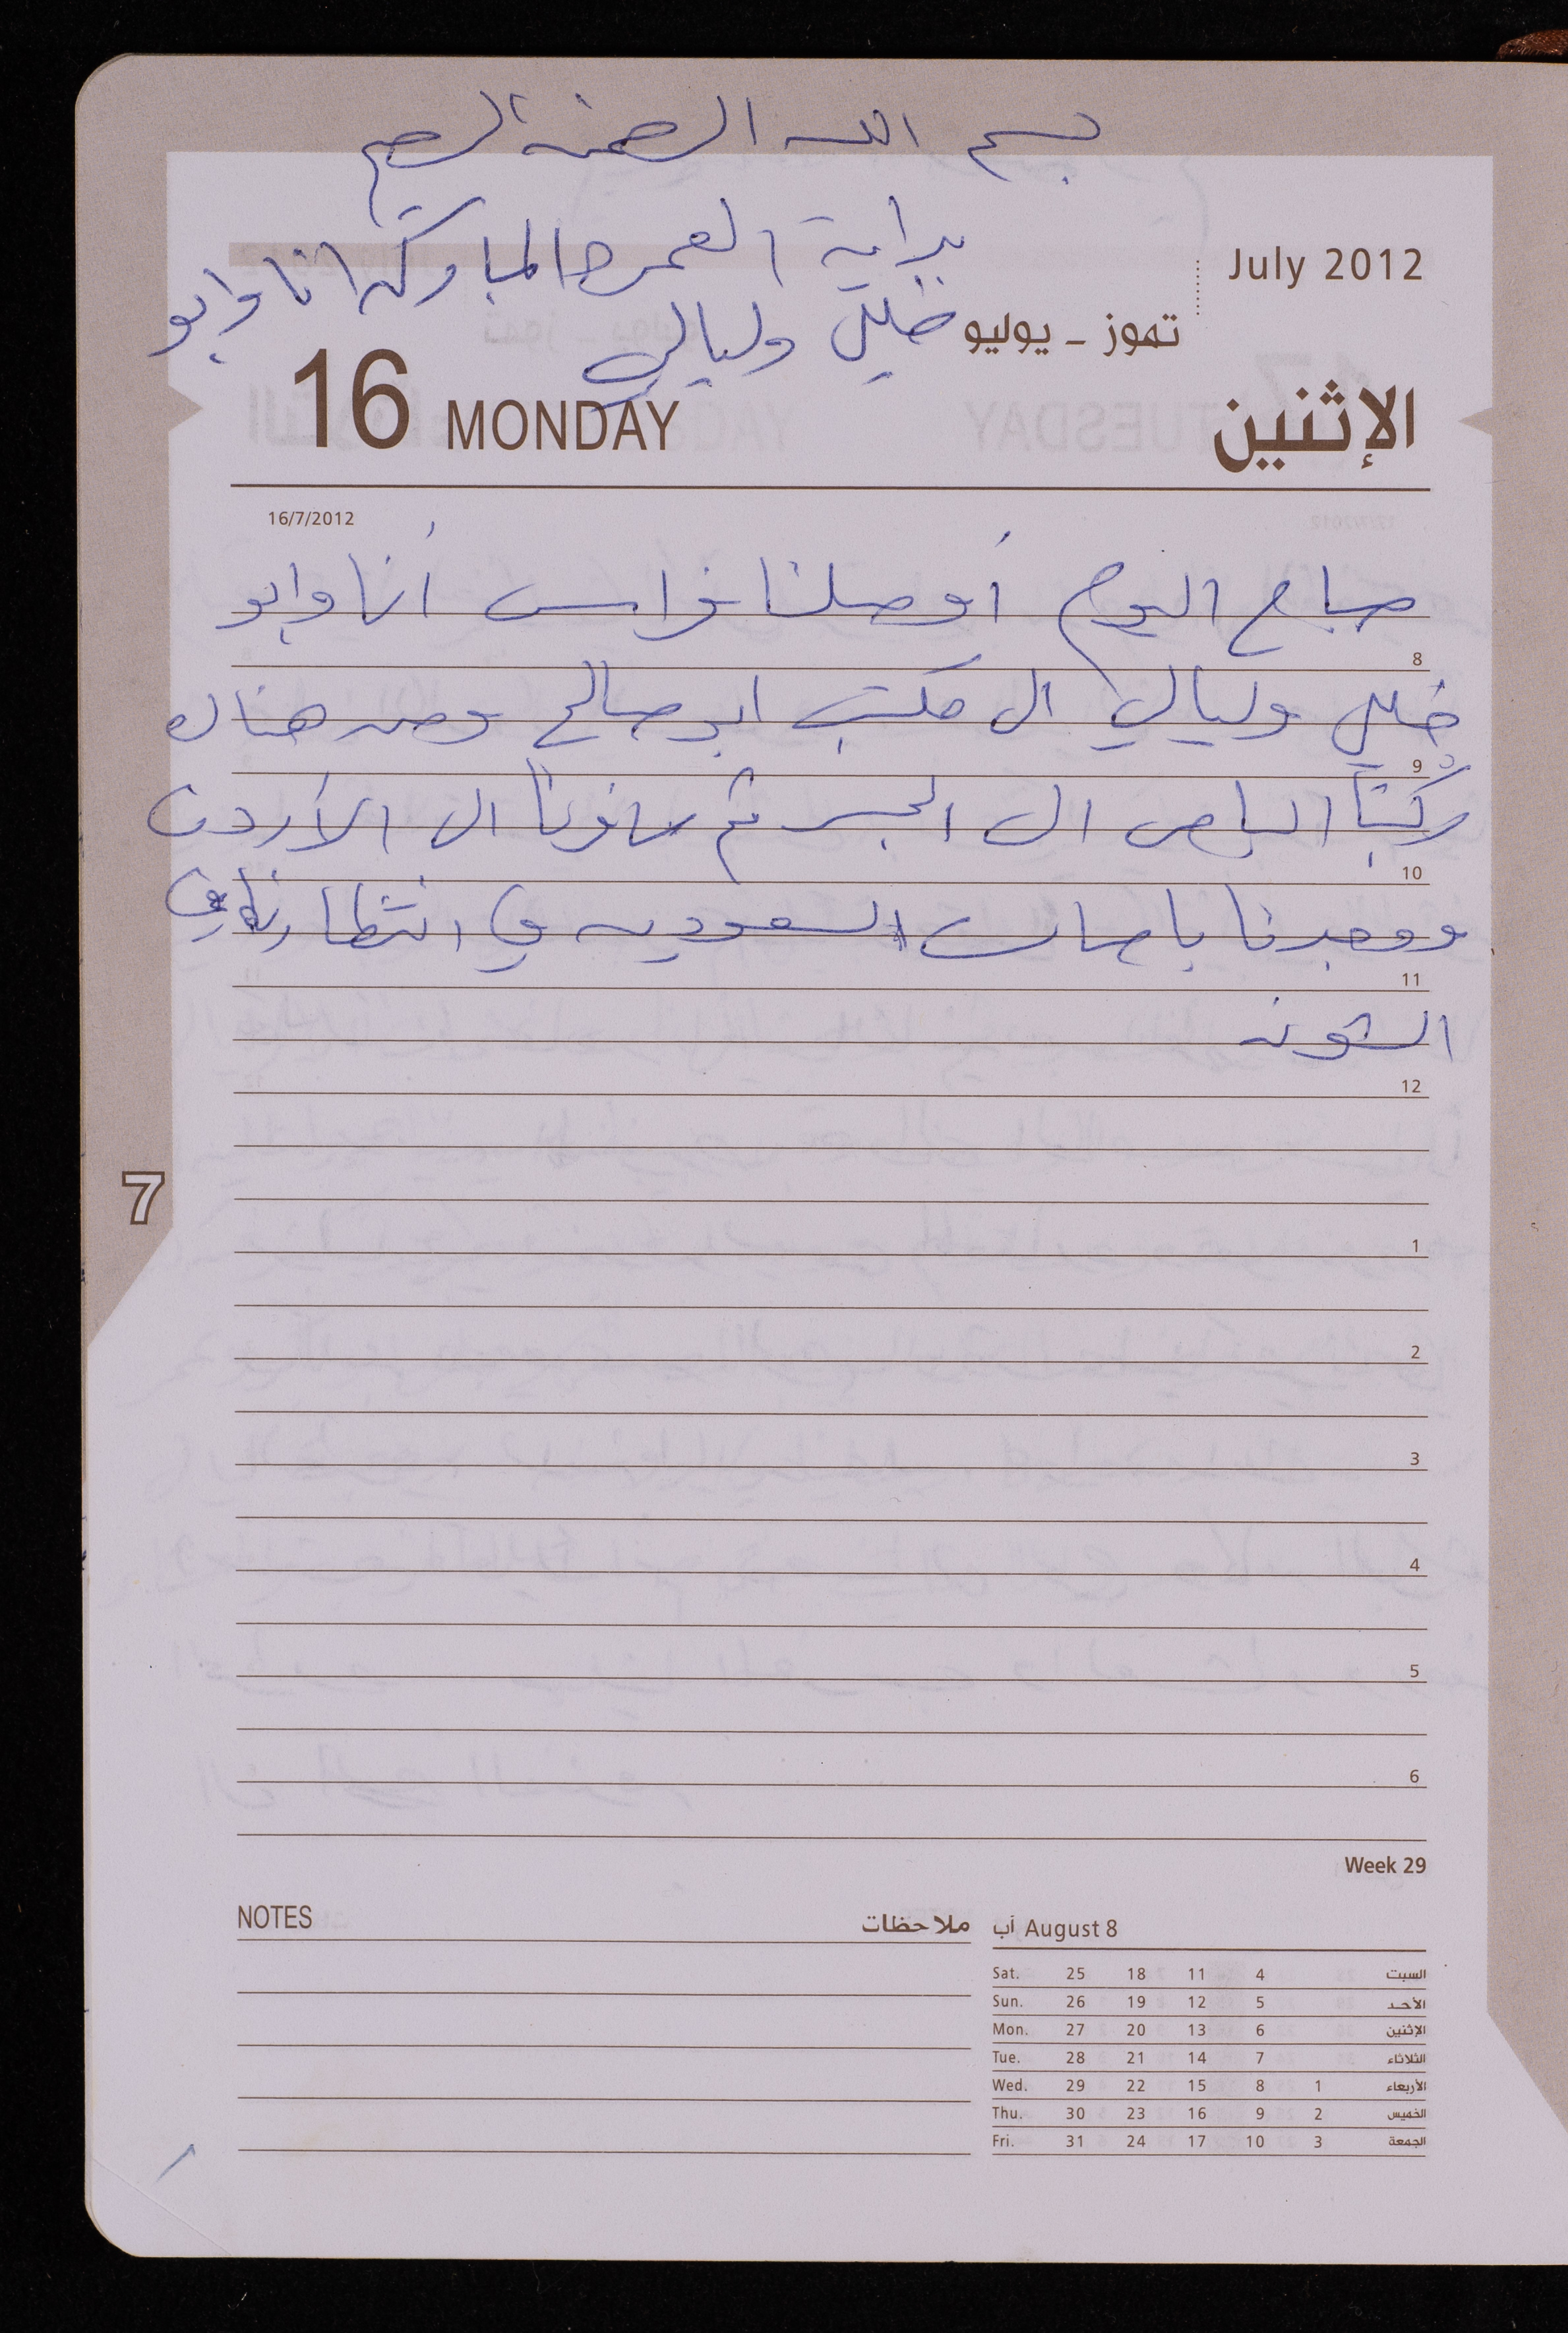 بسم الله الرحمن الرحيم
بداية العمره المباركه انا وابو
خليل وليالي
July 2012
تموز - يوليو
16 MONDAY
الإثنين
16/7/2012
صباح اليوم أوصلنا فراس أنا وابو
8
خليل وليالي الى مكتب ابو صالح ومن هناك
9
ركبنا الباص الى الجسر ثم سافرنا الى الأردن
10
ووجدنا باصات السعوديه في انتظارنا في
11
الشونه
12
7
1
2
3
4
5
6
Week 29
NOTES
ملاحظات
آب August 8
Sat. 25 18 11 4 السبت
Sun. 26 19 12 5 الأحد
Mon. 27 20 13 6 الإثنين
Tue. 28 21 14 7 الثلاثاء
Wed. 29 22 15 8 1 الأربعاء
Thu. 30 23 16 9 2 الخميس
Fri. 31 24 17 10 3 الجمعة